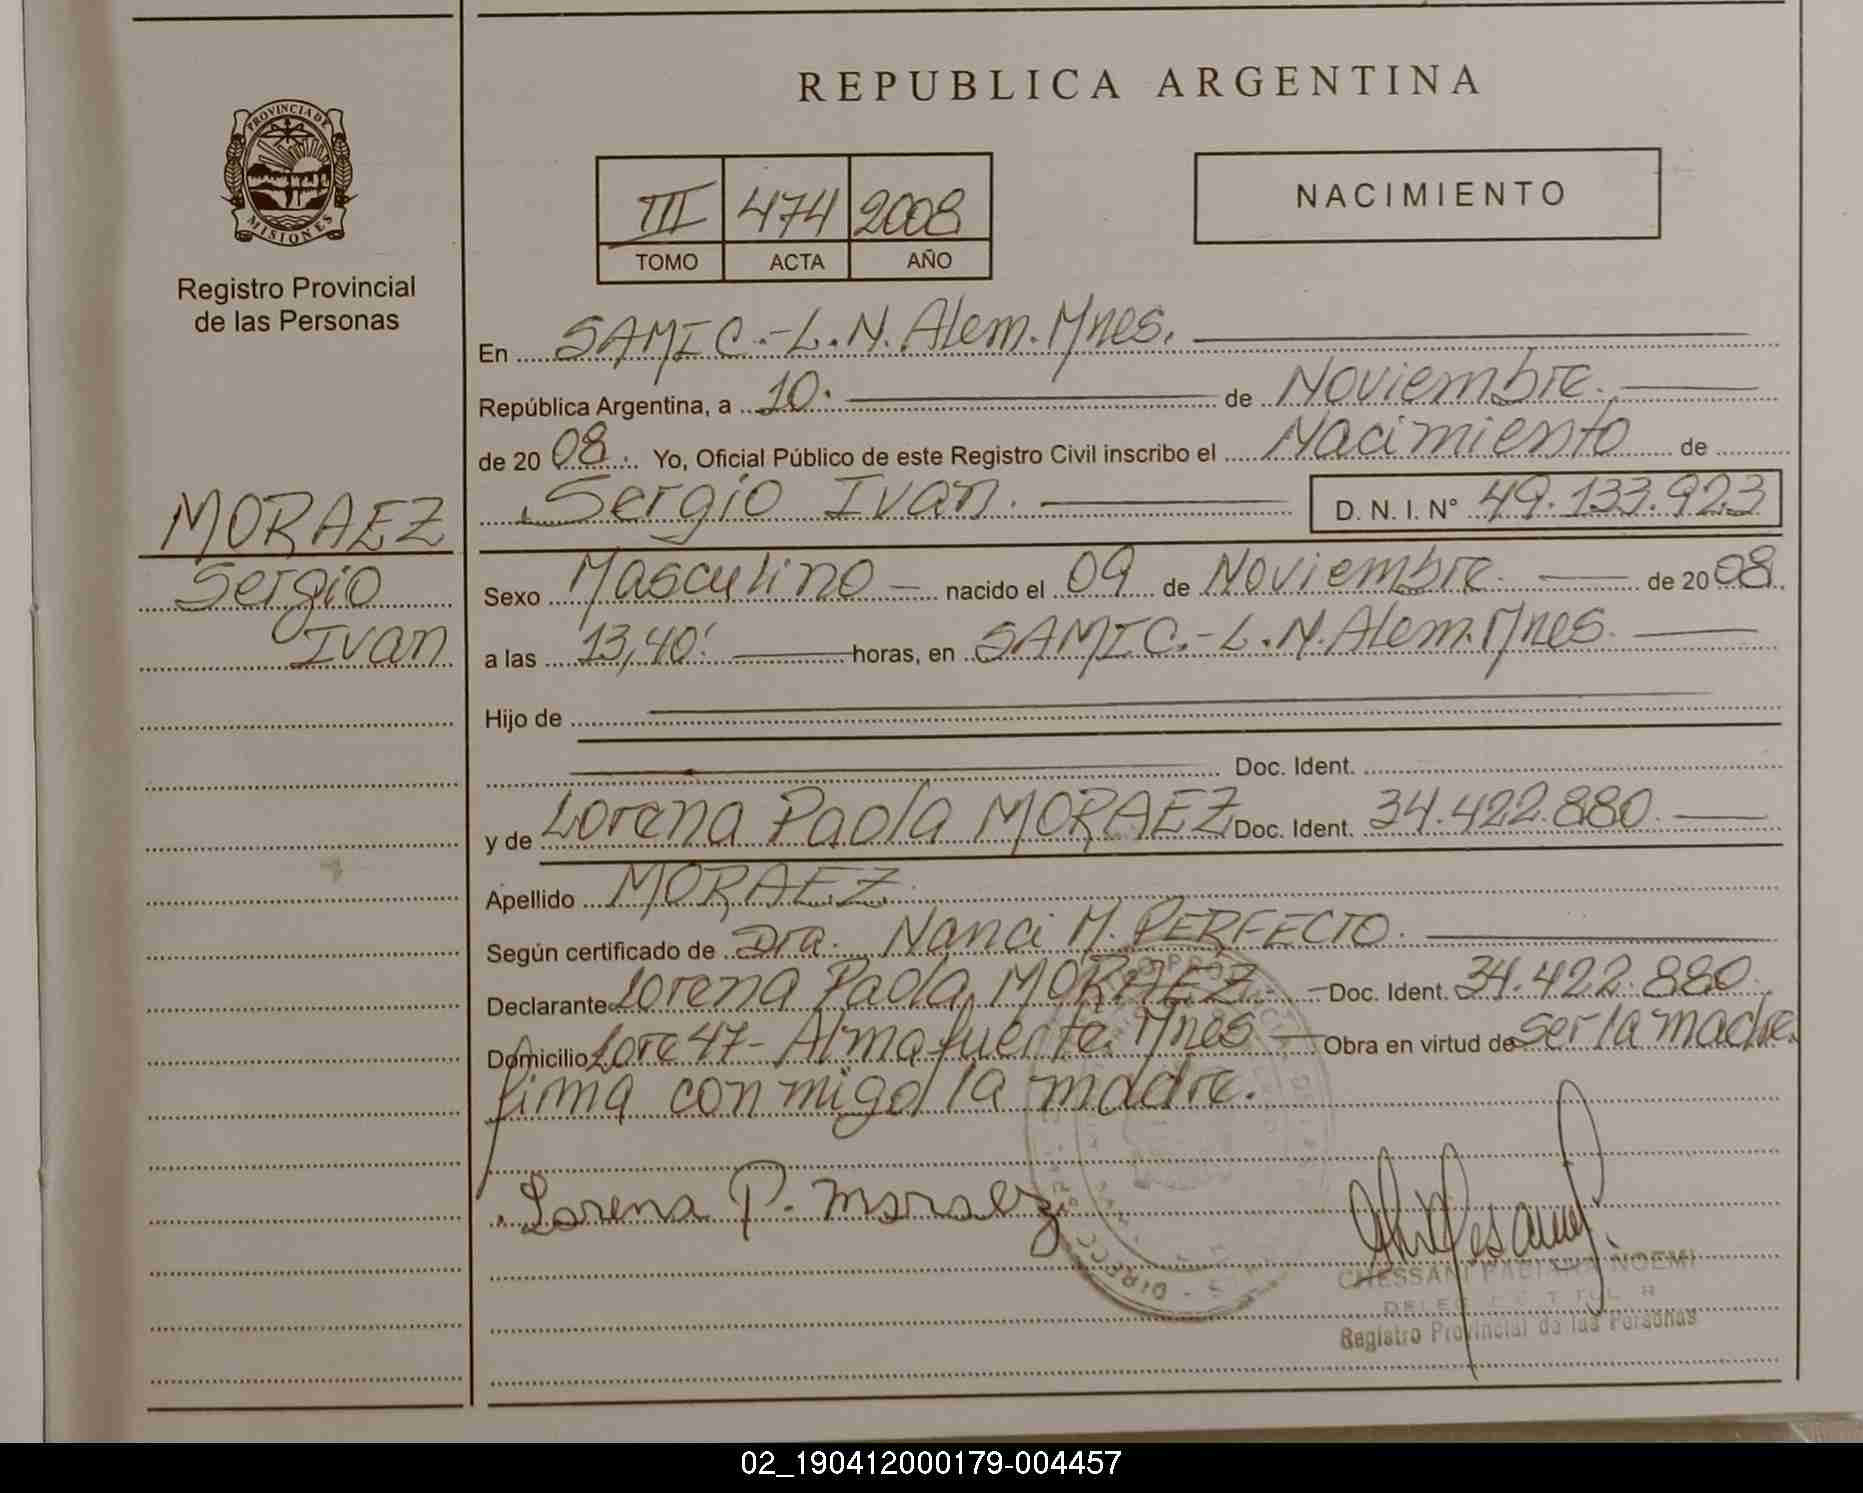 REPUBLICA ARGENTINA
PROVINCIA DE
MISIONES
Registro Provincial
de las Personas
III 474 2008
TOMO ACTA AÑO
NACIMIENTO
En SAMIC.-L.N.Alem.Mnes.
República Argentina, a 10. de Noviembre.
de 2008. Yo, Oficial Público de este Registro Civil inscribo el Nacimiento de
Sergio Ivan. D. N. I. N° 49.133.923
MORAEZ
Sergio
Ivan
Sexo Masculino - nacido el 09 de Noviembre. de 2008.
a las 13,40' horas, en SAMIC.-L.N.Alem.Mnes.
Hijo de
Doc. Ident.
y de Lorena Paola MORAEZ Doc. Ident. 34.422.880.
Apellido MORAEZ.
Según certificado de Dra. Nanci M. PERFECTO.
Declarante Lorena Paola MORAEZ.- Doc. Ident. 34.422.880.
Domicilio Lote 47- Almafuerte. Mnes - Obra en virtud de ser la madre.
firma conmigo la madre.
Lorena P. moraez
CHESSANI FABIANA NOEMI
Registro Provincial de las Personas
02_190412000179-004457